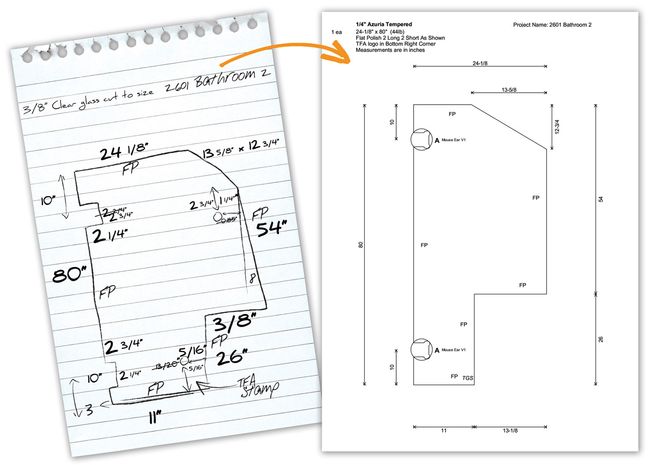 3/8" Clear glass cut to size 2601 Bathroom 2
24 1/8"
FP
13 5/8" x 12 3/4"
10"
2 3/4"
2 1/4"
2 3/4"
1 1/4"
FP
54"
80"
FP
8
3/8"
FP
2 3/4"
5/16"
26"
10"
2 1/4"
5/16"
3
FP
TFA
Stamp
11"
1/4" Azuria Tempered
Project Name: 2601 Bathroom 2
1 ea
24-1/8" x 80" (44lb)
Flat Polish 2 Long 2 Short As Shown
TFA logo in Bottom Right Corner
Measurements are in inches
24-1/8
13-5/8
FP
10
A Mouse Ear V1
12-3/4
FP
54
80
FP
FP
26
A Mouse Ear V1
10
FP
TGS
11
13-1/8